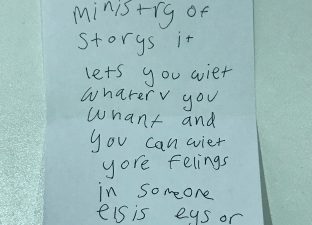 ministry of
storys it
lets you wiet
whaterv you
whant and
you can wiet
yore felings
in someone
elsis eys or